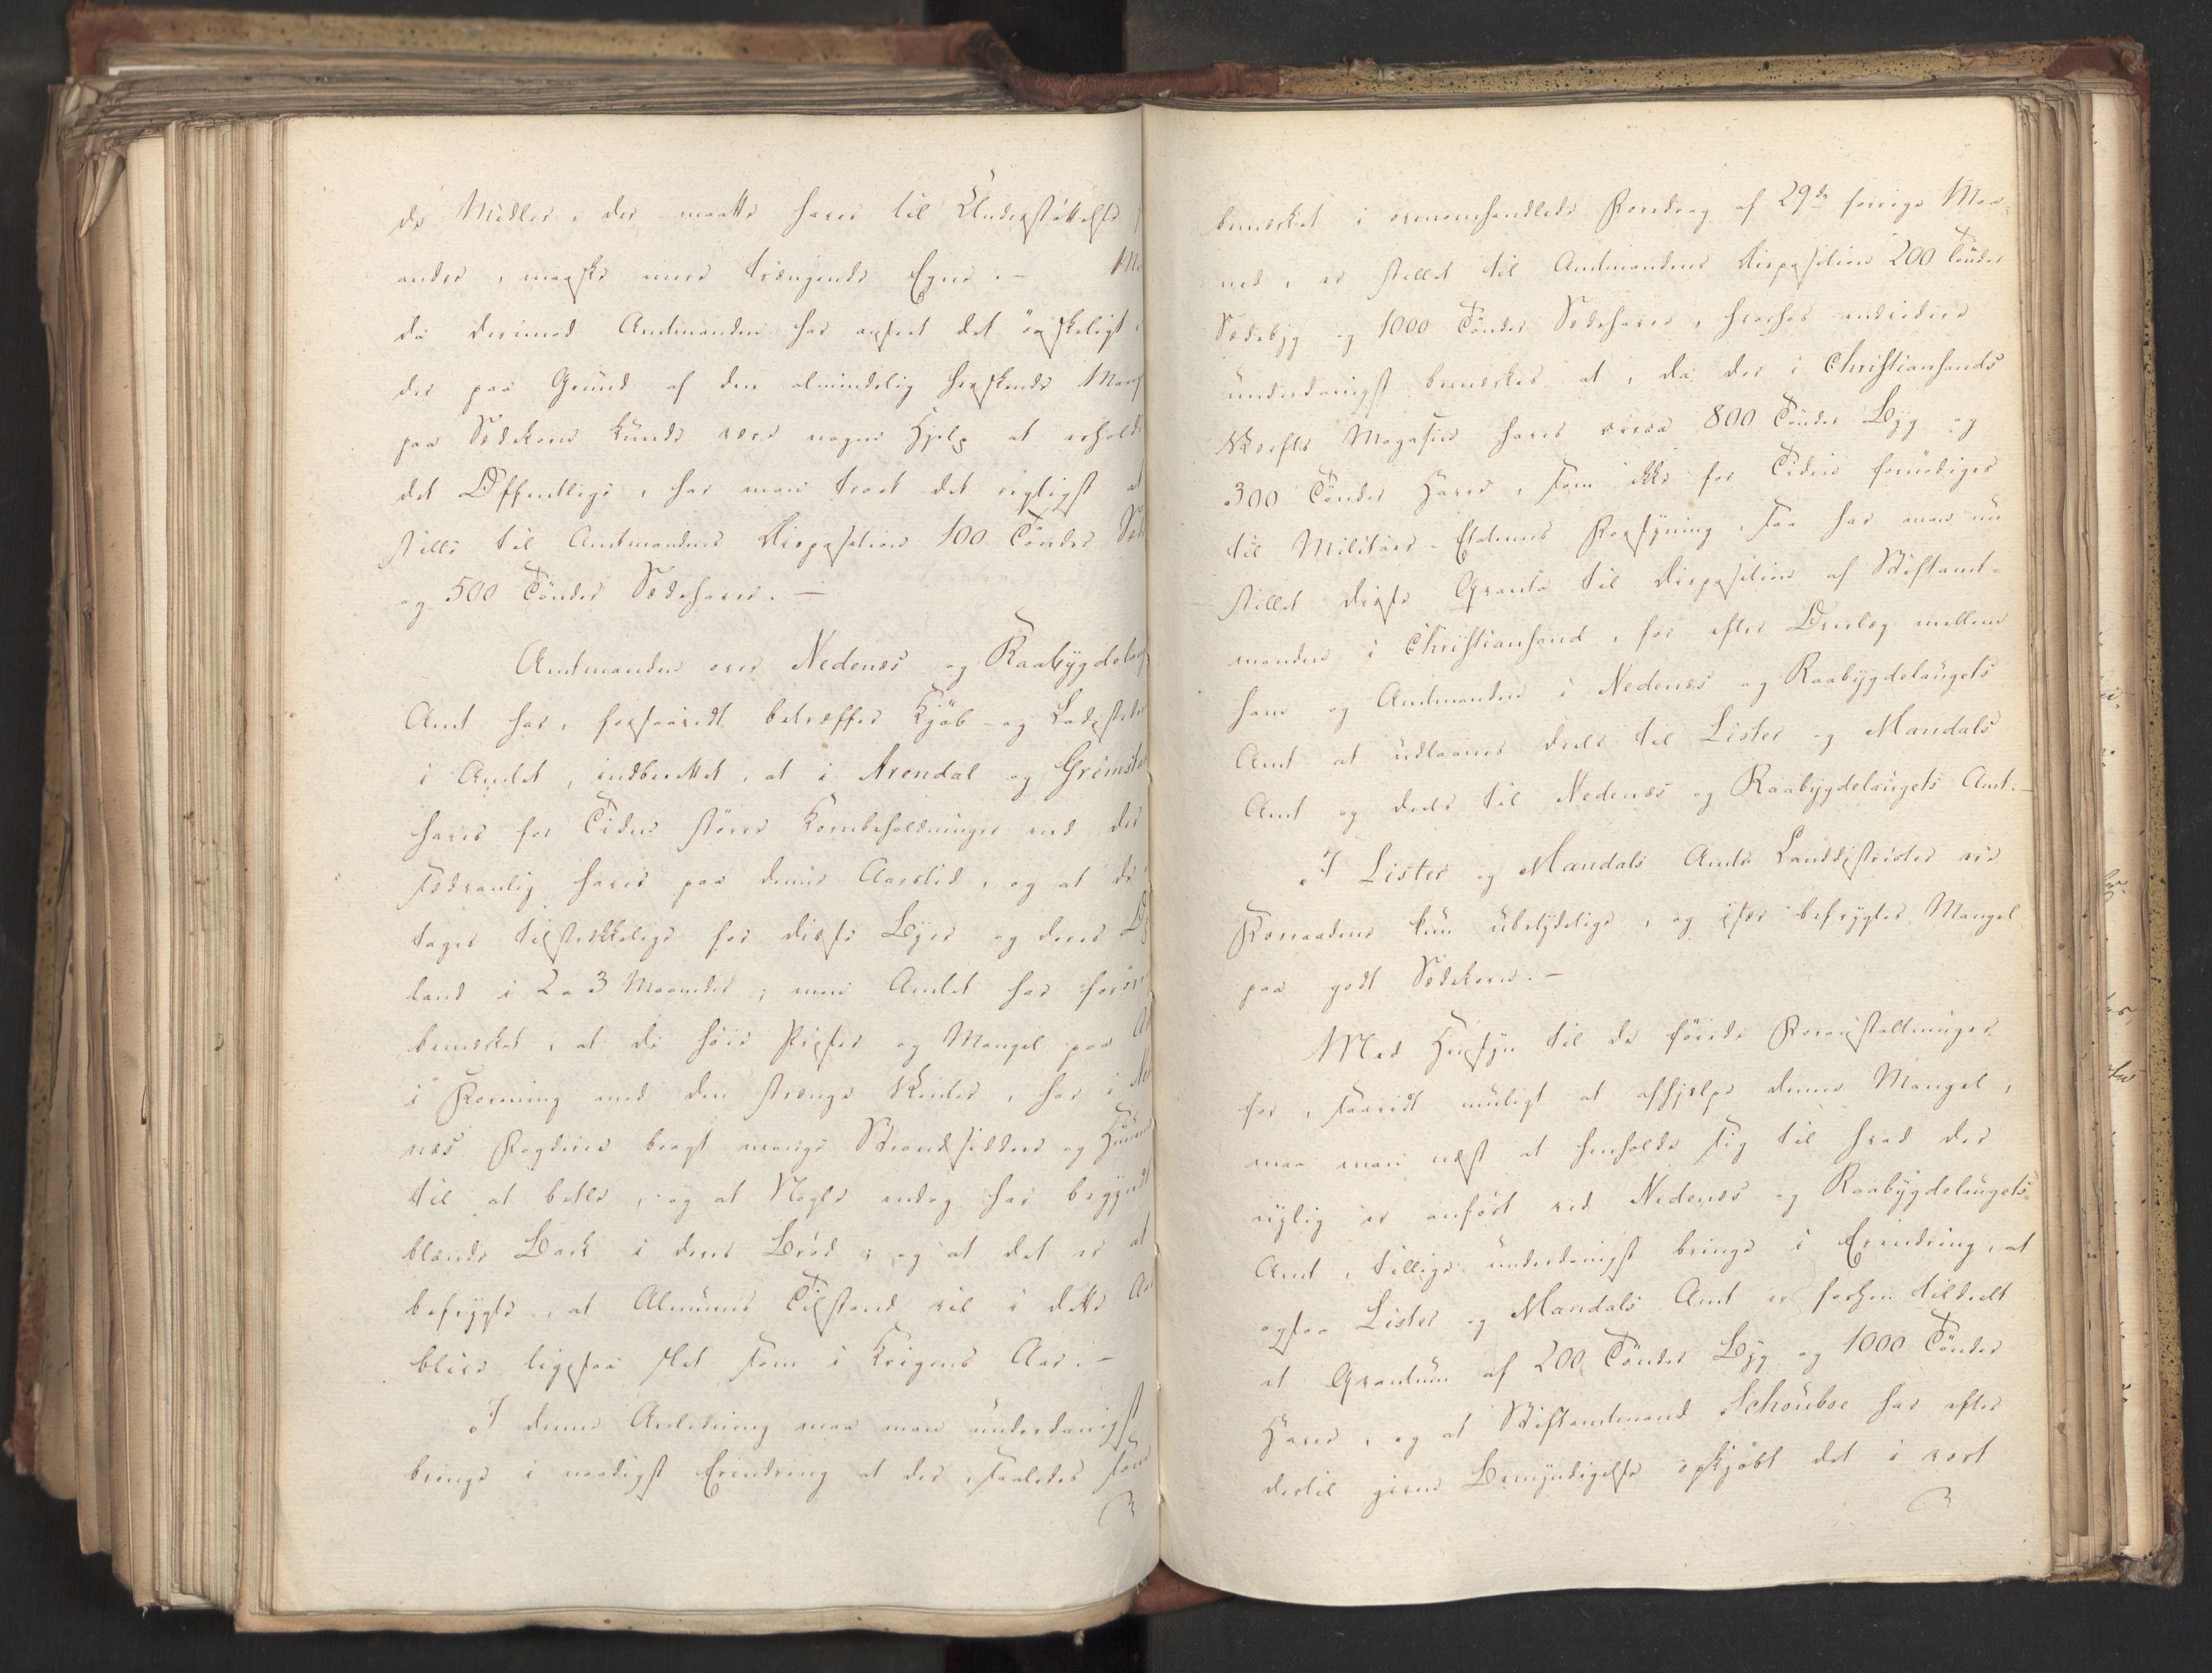 de Midler, der maatte haves til Understøttelse
andre, maaske mere trængende Egne. -
da derimod Amtmanden har anseet det ønskeligt
der paa Grund af den almindelig herskende Mang
paa Sædekorn kunde være nogen Hjelp at erholde
det Offentlige, har man troet det rigtigst at
stille til Amtmandens Disposition 100 Tønder
og 500 Tønder Sædehavre. -
Amtmanden over Nedenes og Raabygdelaug
Amt har, forsaavidt betræffer Kjøb- og Ladesteder
i Amtet, indberettet, at i Arendal og Grimsta
haves for Tiden større Kornbeholdninger end der
sædvanlig haves paa denne Aarstid, og at de
tages tilstrækkelige for disse Byer og deres
land i 2 a 3 Maaneder; men Amtet har forøvr
bemærket, at de høie Priser og Mangel paa
i Forening med den strænge Vinter, har i Ne
næs Fogderie bragt mange Strandsiddere og Huusm
til at betle, og at Nogle endog har begyndt
blande Bark i deres Brød, og at det er at
befrygte, at Almuens Tilstand vil i dette Aar
blive ligesaa slet som i Krigens Aar. -
I denne Anledning maa man underdanigst
bringe i naadigst Erindring at der, saaledes som
bemærket i ovenomhandlede Foredrag af 29de forrige Maa-
ned, er stillet til Amtmandens Disposition 200 Tønder
Sædebyg og 1000 Tønder Sædehavre, hvorhos endvidere
underdanigst bemærkes at, da der i Christiansands
Værfts Magasin haves circa 800 Tønder Byg og
300 Tønder Havre, som ikke for Tiden fornødiges
til Militær-Etatens Forsyning, saa har man nu
stillet disse Qvanta til Disposition af Stiftamt-
manden i Christiansand, for efter Overlæg mellem
ham og Amtmanden i Nedenes og Raabygdelaugets
Amt at udlaanes deels til Lister og Mandals
Amt og deels til Nedenes og Raabygdelaugets Amt. -
I Lister og Mandals Amts Landdistricter ere
Forraadene kun ubetydelige, og især befrygtes Mangel
paa godt Sædekorn. -
Med Hensyn til de førede Foranstaltninger
for, saavidt muligt at afhjelpe denne Mangel,
maa man næst at henholde sig til hvad der
nylig er anført ved Nedenes og Raabygdelaugets
Amt, tillige underdanigst bringe i Erindring, at
ogsaa Lister og Mandals Amt er forhen tildeelt
et Qvantum af 200 Tønder Byg og 1000 Tønder
Havre, og at Stiftamtmand Schouboe har efter
dertil given Bemyndigelse opkjøbt det i vort